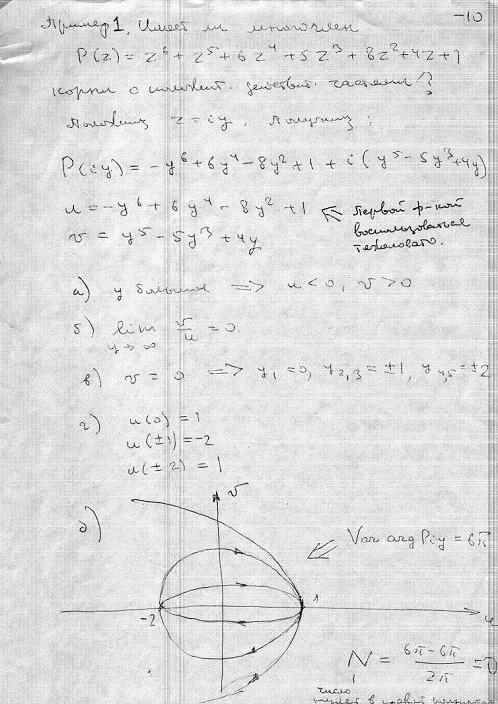 -10
Пример 1. Имеет ли многочлен
P(z) = z⁶ + z⁵ + 6z⁴ + 5z³ + 8z² + 4z + 1
корни с положит. действит. частями?
Положим z = iy. Получим:
P(iy) = -y⁶ + 6y⁴ - 8y² + 1 + i(y⁵ - 5y³ + 4y)
u = -y⁶ + 6y⁴ - 8y² + 1
v = y⁵ - 5y³ + 4y
Первой ф-кой
воспользоваться
тяжеловато.
а) y большое => u < 0, v > 0
б) lim v/u = 0.
y → ∞
в) v = 0 => y₁ = 0, y₂,₃ = ±1, y₄,₅ = ±2
г) u(0) = 1
u(±1) = -2
u(±2) = 1
д)
v
Var arg P iy = 6π
-2
1
u
N = (6π - 6π)/2π = 0
число
нулей в правой